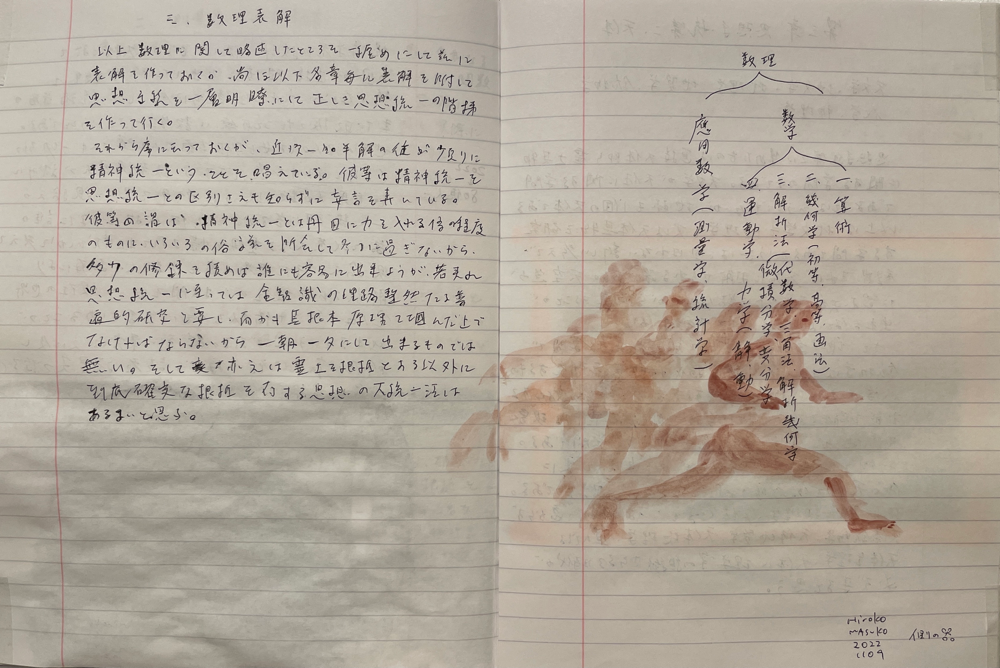 三、数理表解
以上数理に関して略述したところを一纏めにして茲に
表解を作っておくが、尚ほ以下各章毎に表解を附して
思想系統を一層明瞭にして正しき思想統一の階梯
を作って行く。
それから序に云っておくが、近次一知半解の徒が頻りに
精神統一という、ことを唱えている。彼等は精神統一と
思想統一との区別さえも知らずに妄言を弄している。
彼等の謂ば、精神統一とは丹田に力を入れる位の程度
のものに、いろいろの俗識を附会して行に過ぎないから、
多少の修錬を積めば誰にも容易に出来ようが、若夫れ
思想統一に至っては全智識の理路整然たる普
遍的研究を要し、而かも其根本原理を掴んだ上で
なければならないから一朝一夕にして出来るものでは
無い。そして亦之は霊を根柢とする以外に
到底確実な根柢を有する思想の大統一法は
あるまいと思ふ。
数理
数学
一、算術
二、幾何学(初等、高等、画法)
三、解析法(代数学、三角法、解析幾何学
微積分学、変分学
四、運動学、力学(静、動)
應用数学(測量学、統計学)
Hiroko
MASUKO
2022
1109
悟りの